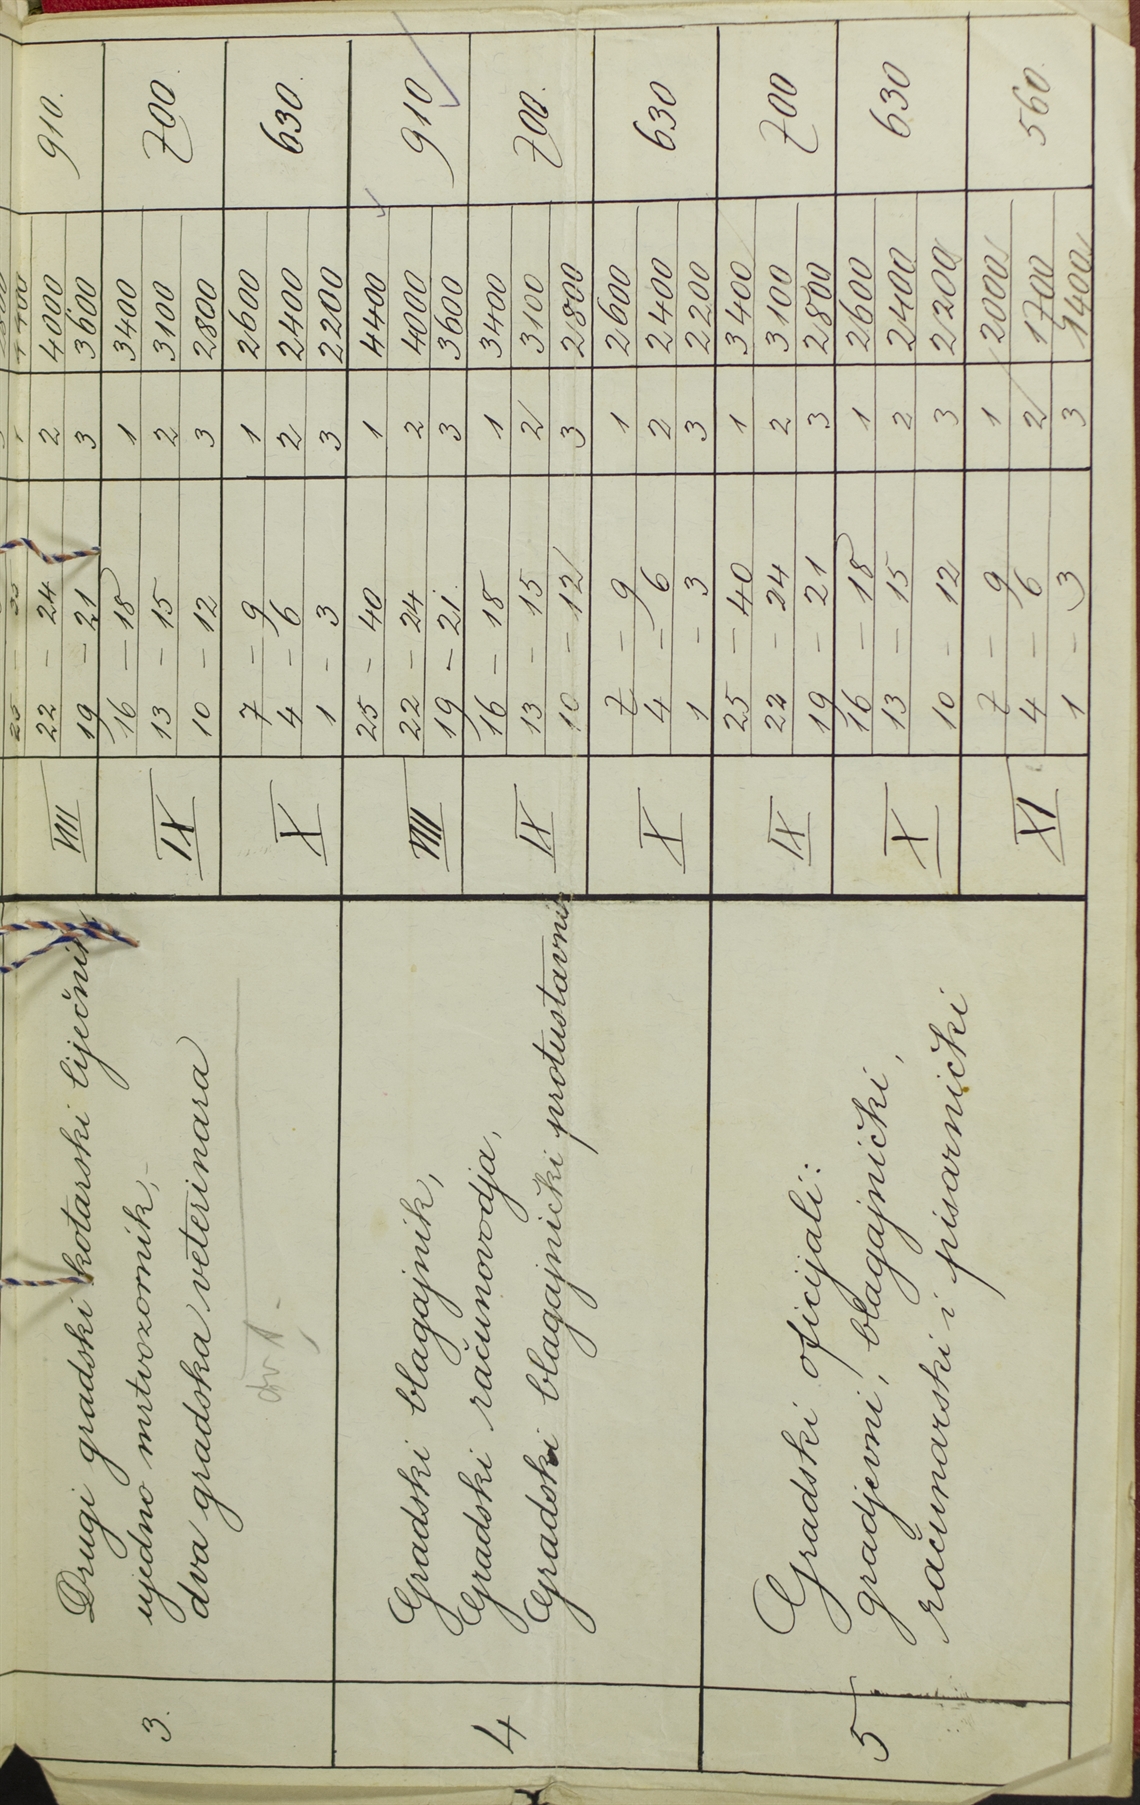 3. Drugi gradski kotarski liječnik
ujedno mrtvozornik,-
dva gradska veterinara
VIII
22 – 24 2 4000 910.
19 – 21 3 3600
IX
16 – 18 1 3400 700.
13 – 15 2 3100
10 – 12 3 2800
X
7 – 9 1 2600 630.
4 – 6 2 2400
1 – 3 3 2200
4 Gradski blagajnik,
Gradski računovodja,
Gradski blagajnički protustavnik
VIII
25 – 40 1 4400 910
22 – 24 2 4000
19 – 21. 3 3600
IX
16 – 18 1 3400 700.
13 – 15 2 3100
10 – 12 3 2800
X
7 – 9 1 2600 630
4 – 6 2 2400
1 – 3 3 2200
5 Gradski oficijali:
gradjevni, blagajnički,
računarski i pisarnički
IX
25 – 40 1 3400 700
22 – 24 2 3100
19 – 21 3 2800
X
16 – 18 1 2600 630
13 – 15 2 2400
10 – 12 3 2200
XI
7 – 9 1 2000 560.
4 – 6 2 1700
1 – 3 3 1400